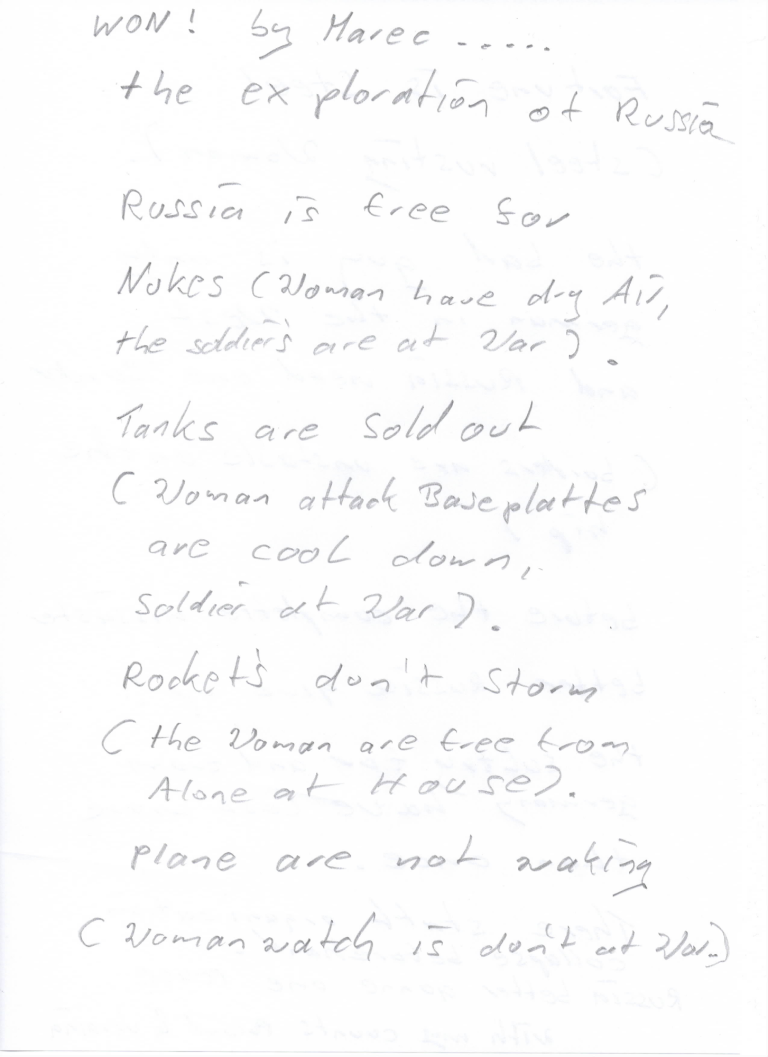 WON! by Marec .....
the exploration of Russia
Russia is free for
Nukes (Woman have dry Air,
the soldier's are at War).
Tanks are Sold out
(Woman attack Baseplattes
are cool down,
Soldier at War).
Rocket's don't Storm
(the Woman are free from
Alone at House).
plane are not waking
(Woman watch is don't at War.)